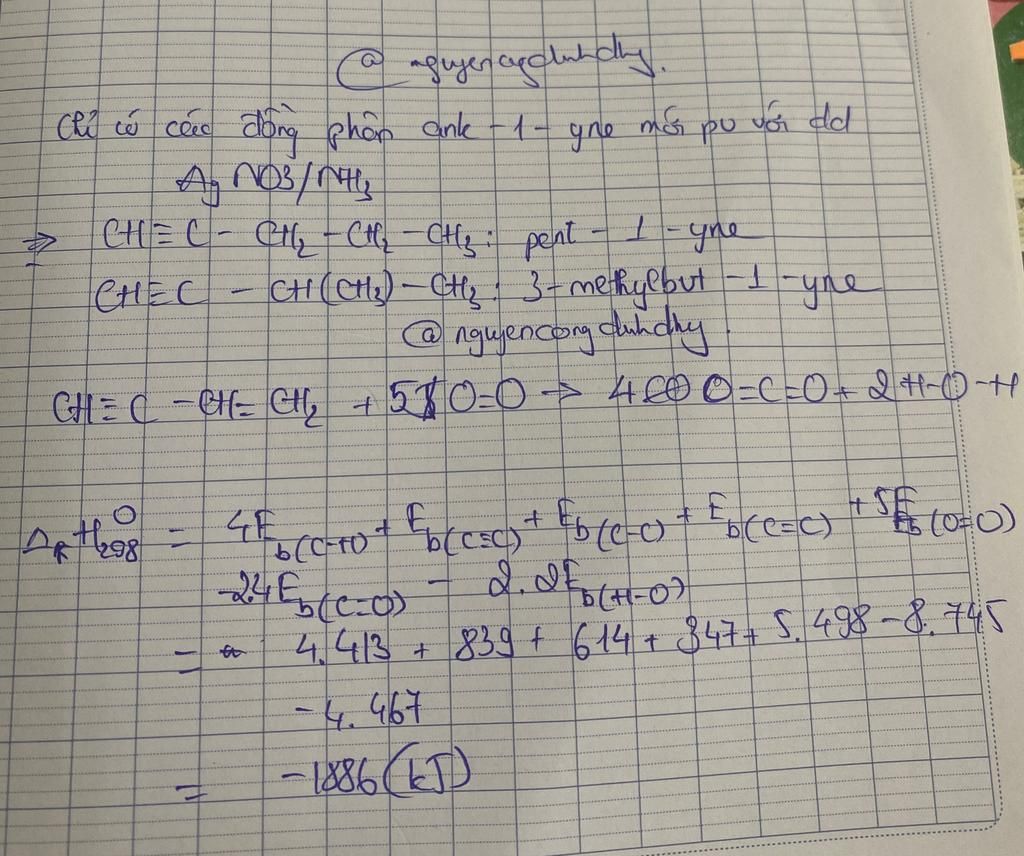 @ nguyencgdinhdhy.
Chỉ có các đồng phân ank-1-yne mới pư với dd
AgNO3/NH3
⇒ CH≡C - CH2 - CH2 - CH3: pent - 1 - yne
CH≡C - CH(CH3) - CH3: 3-methylbut - 1 - yne
@nguyencongdinhdhy.
CH≡C - CH=CH2 + 5 O=O → 4 O=C=O + 2 H-O-H
ΔrH⁰298 = 4Eb(C-H) + Eb(C≡C) + Eb(C-C) + Eb(C=C) + 5Eb(O=O)
-2.4Eb(C=O) - 2.2Eb(H-O)
= 4.413 + 839 + 614 + 347 + 5.498 - 8.745
- 4.467
= -1886 (kJ)